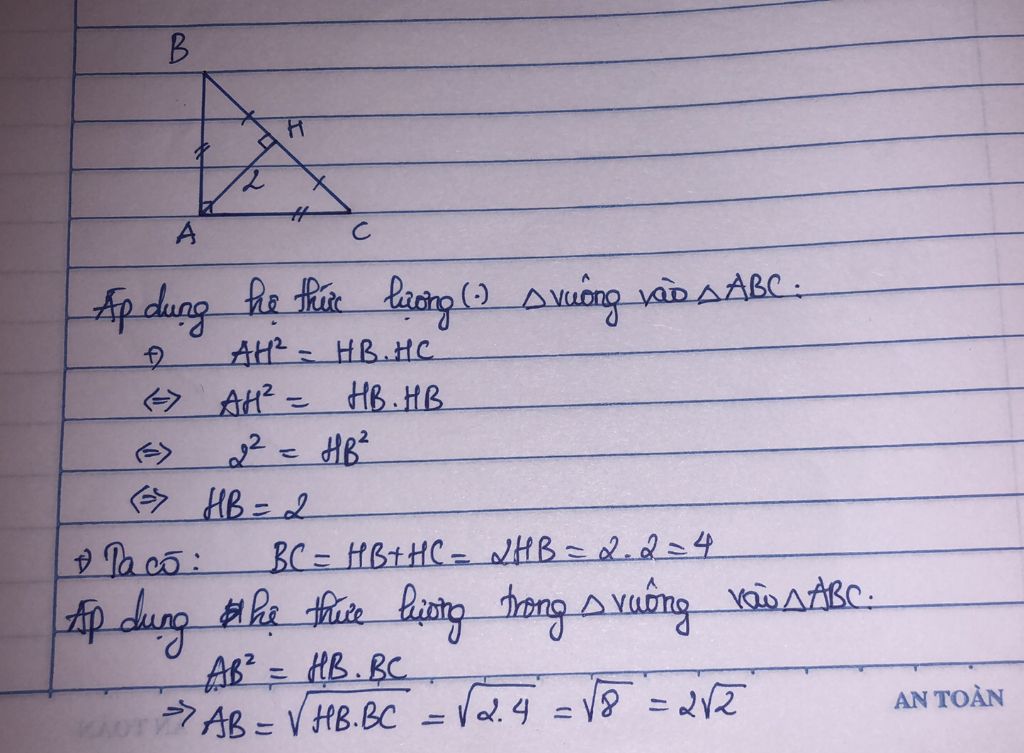 B
H
2
A
C
Áp dụng hệ thức lượng (.) △ vuông vào △ABC:
+) AH² = HB.HC
<=> AH² = HB.HB
<=> 2² = HB²
<=> HB = 2
+) Ta có: BC = HB+HC = 2HB = 2.2 = 4
Áp dụng hệ thức lượng trong △ vuông vào △ABC:
AB² = HB.BC
=> AB = √HB.BC = √2.4 = √8 = 2√2
AN TOÀN